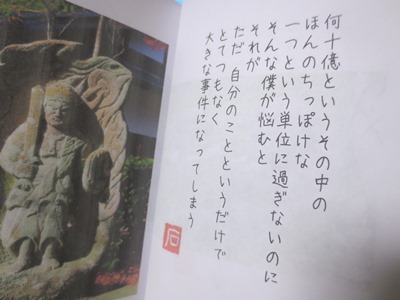 何十億というその中の
ほんのちっぽけな
一つという単位に過ぎないのに
そんな僕が悩むと
それが
ただ 自分のことというだけで
とてつもなく
大きな事件になってしまう
石